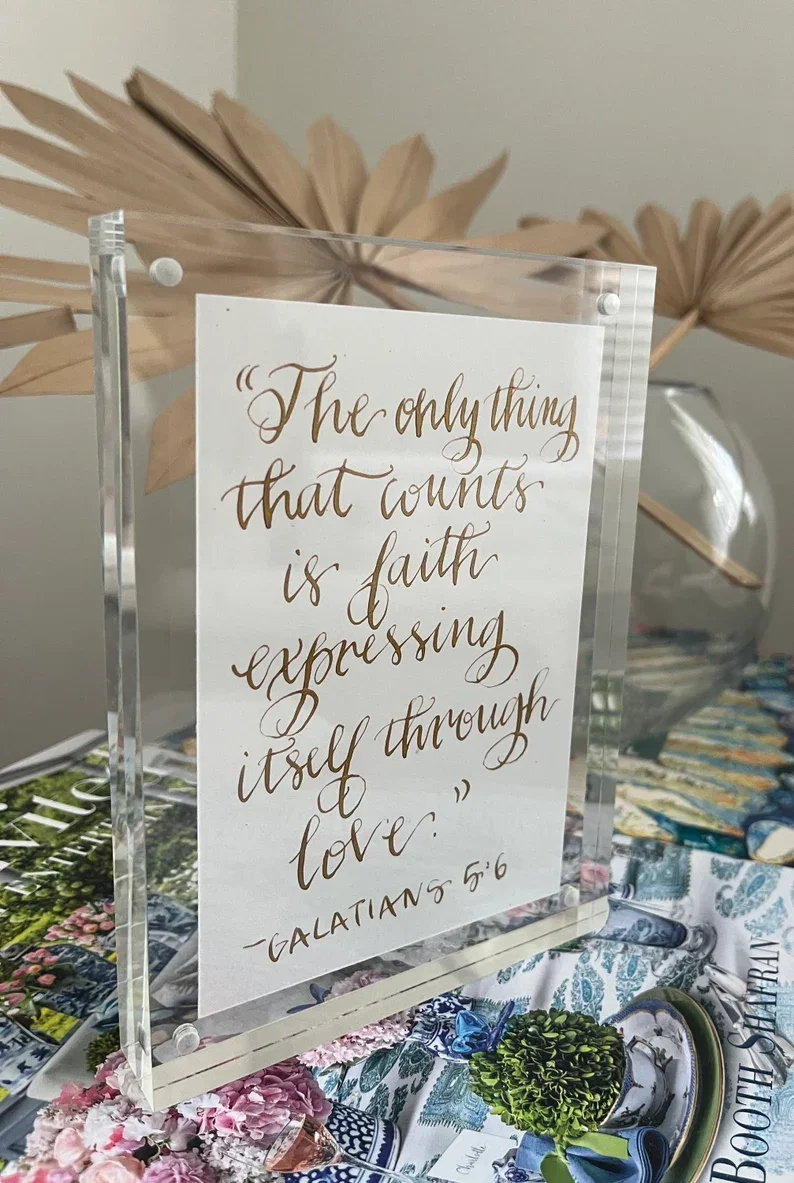 “The only thing
that counts
is faith
expressing
itself through
love.”
-GALATIANS 5:6
BOOTH SHAFRAN
Charlotte